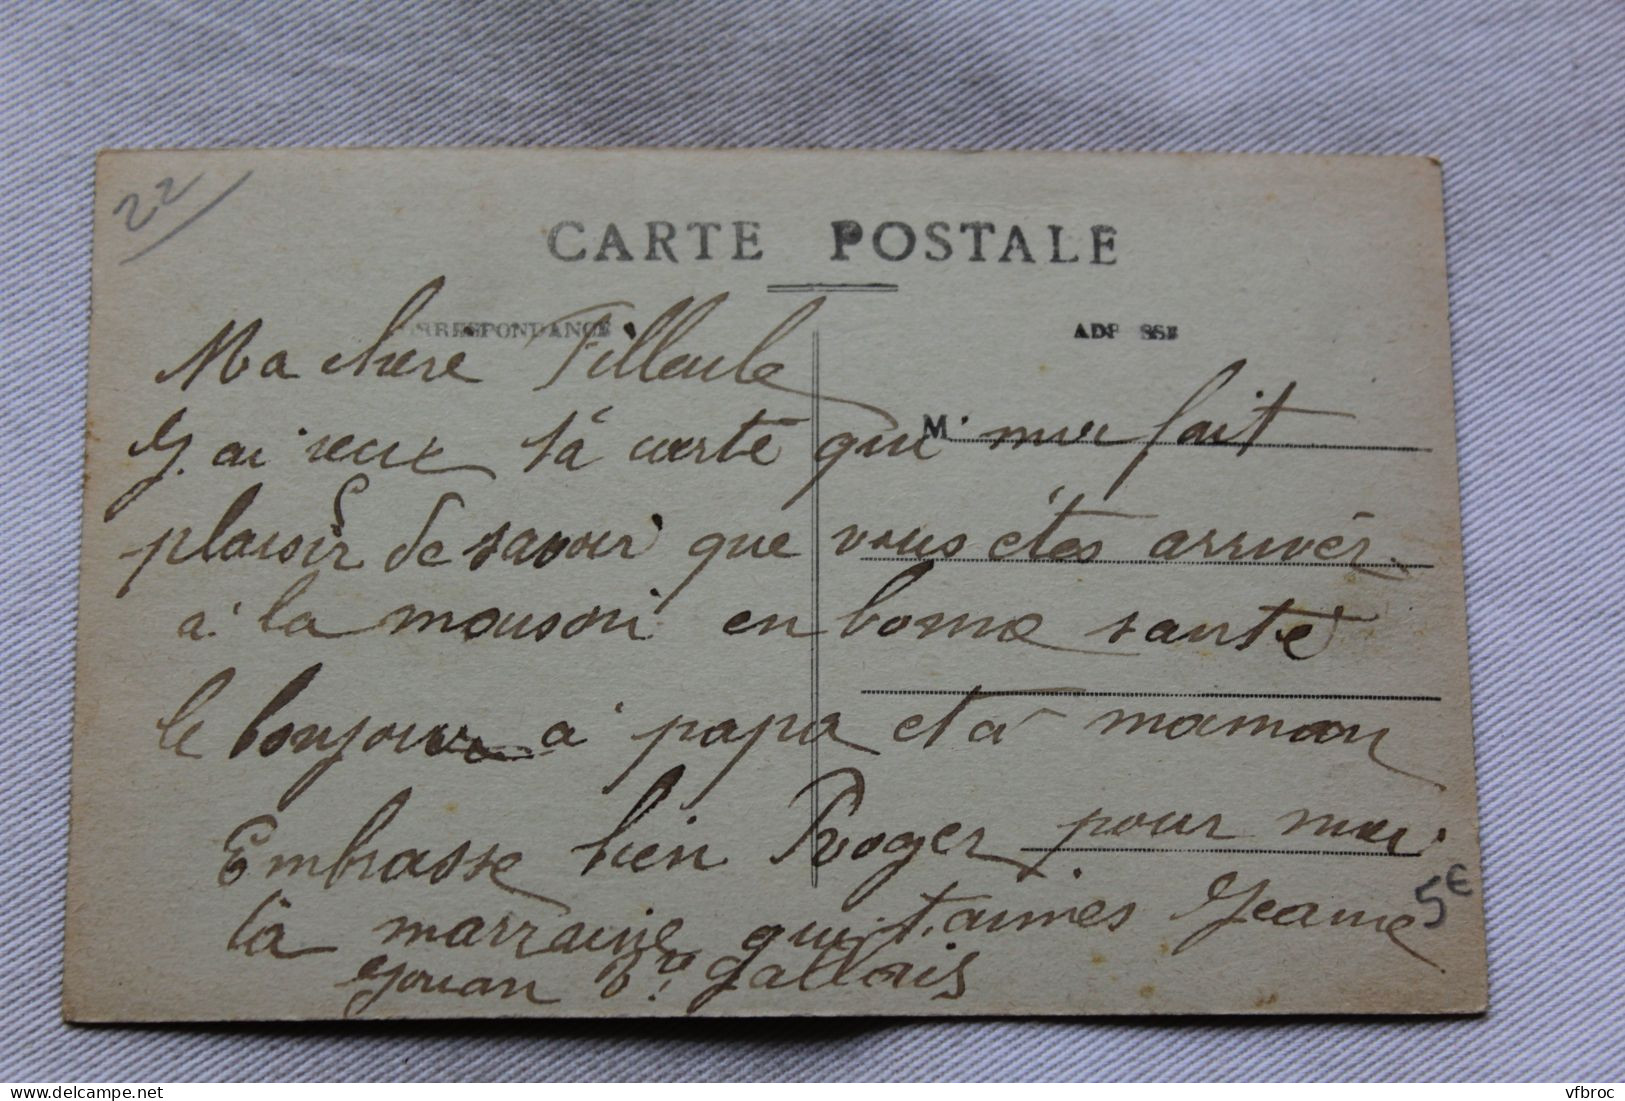 22
CARTE POSTALE
CORRESPONDANCE
ADRESSE
Ma chere Filleule
J. ai reue tá carte qui M. moi fait
plaisir de savoir que vous étes arrivér
à la maison en bonne santé
le bonjour a papa et a maman
Embrasse bien Roger pour moi
ta marraine qui t.aimes Jeanne
Jouan Vve Gallais
5€
delcampe.net
vfbroc